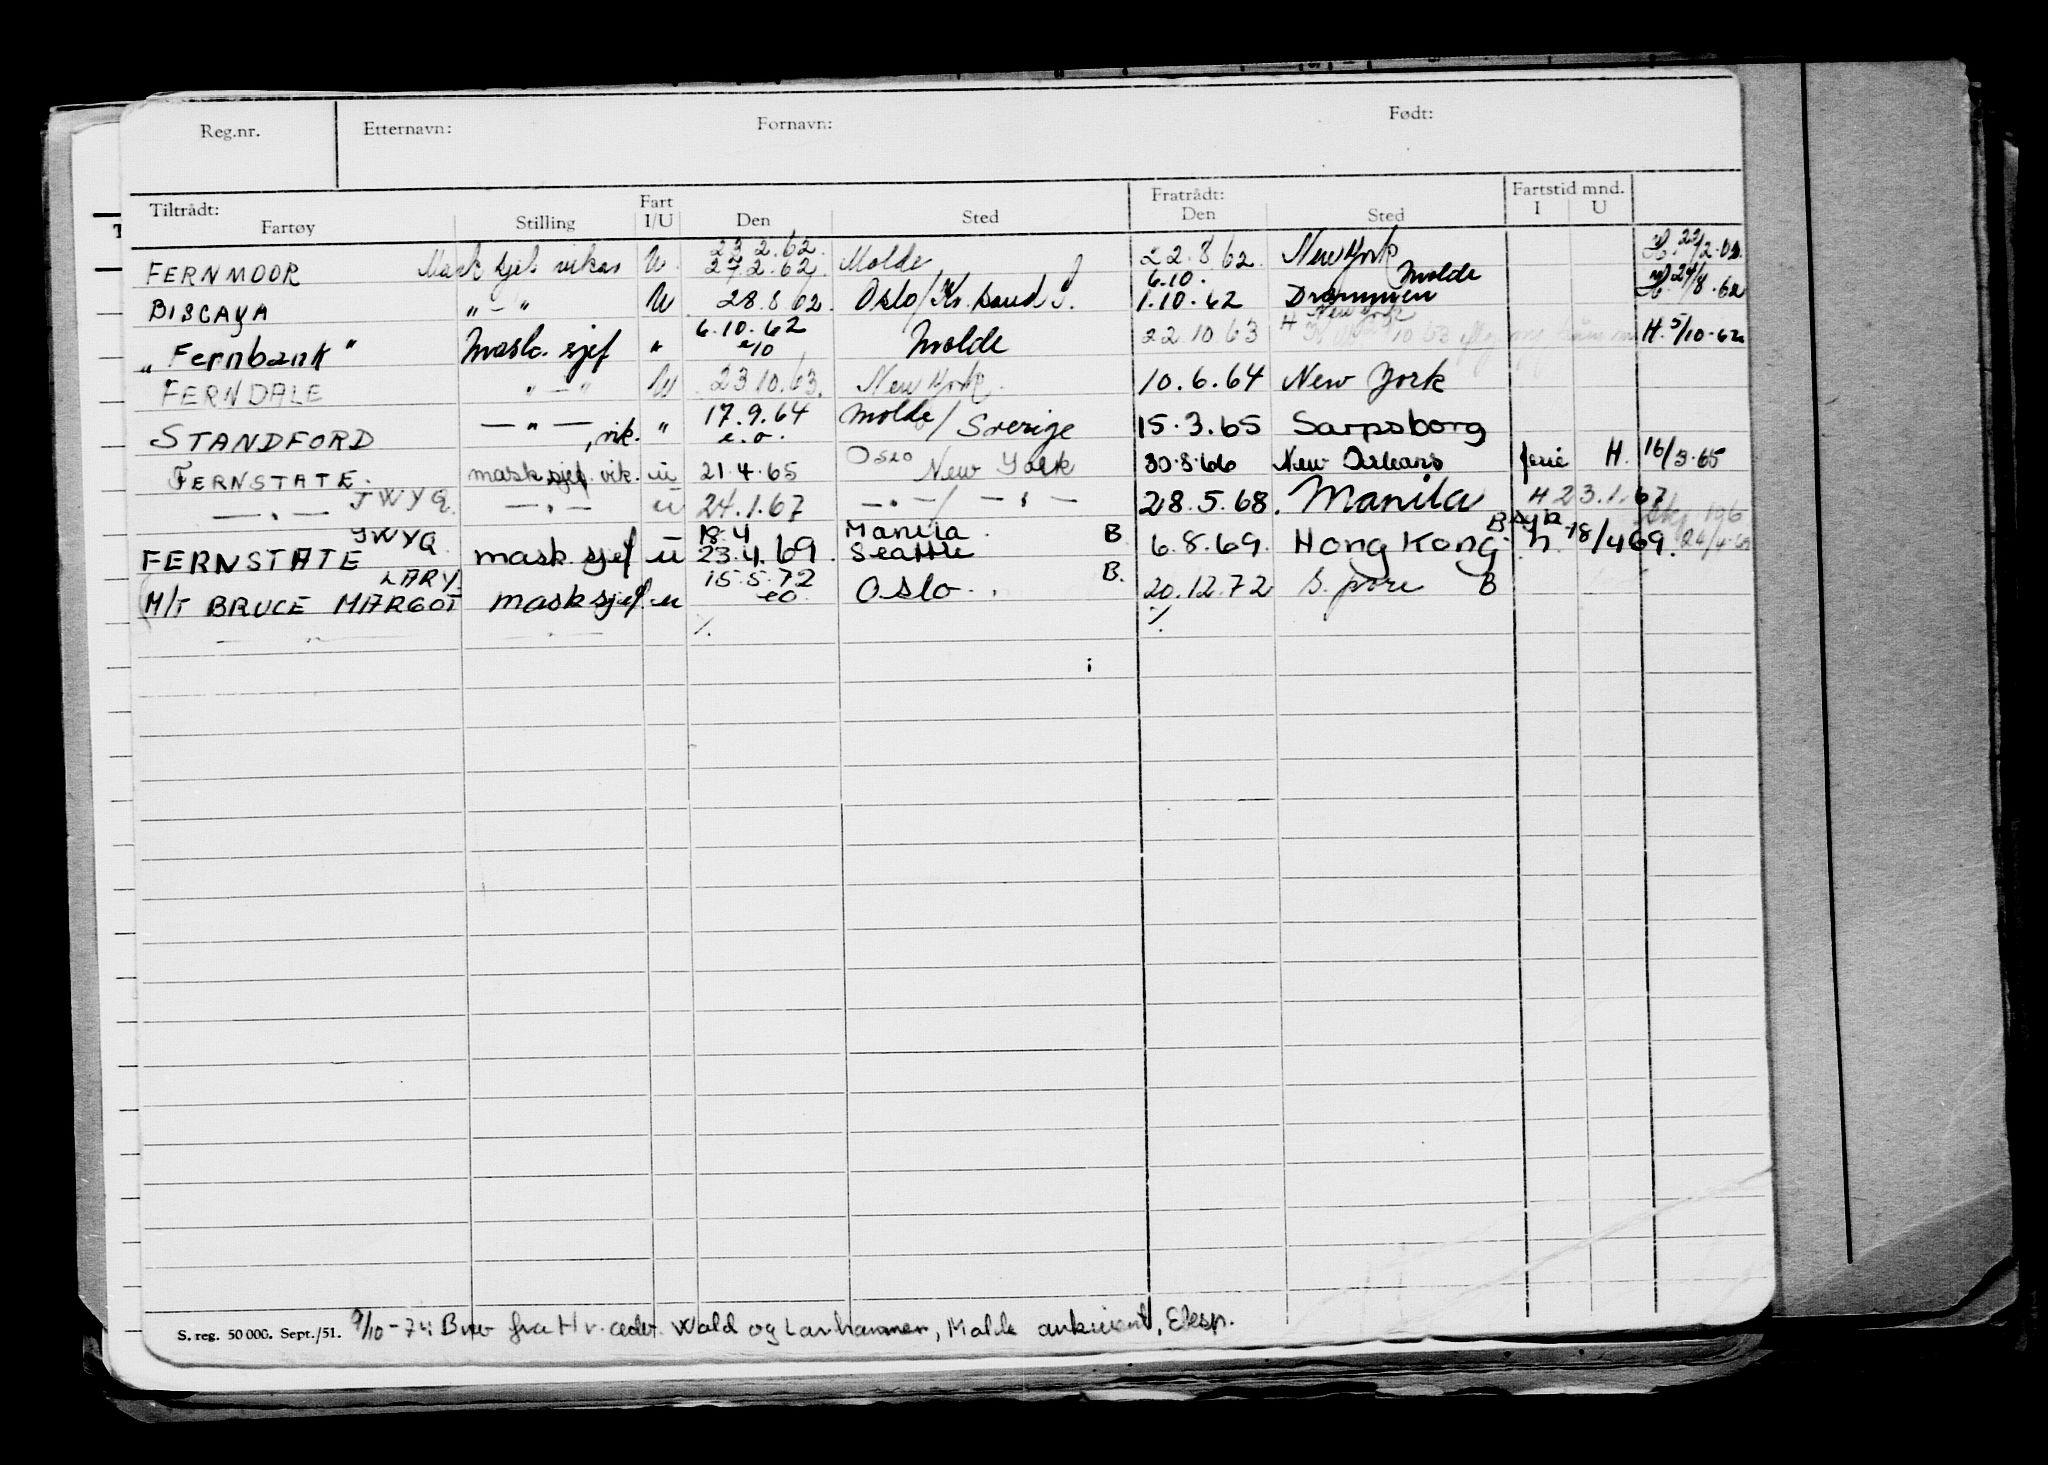 Reg.nr. Etternavn: Fornavn: Født:
Tiltrådt: Fart Fratrådt: Fartstid mnd.
Fartøy Stilling I/U Den Sted Den Sted I U
23.2.62.
FERNMOOR Mask sjef vikar U. 27.2.62 Molde 22.8.62. New York H. 22/2.62
6.10. Molde
BISCAYA " - " U 28.8.62. Oslo/Kr. sand S. 1.10.62 Drammen H. 24/8.62
6.10.62 New York
"Fernbank" Mask. sjef " e/o Molde 22.10.63 H H. 5/10-62
FERNDALE " - " U 23.10.63. New York. 10.6.64 New York
17.9.64
STANDFORD — " — , vik. " e.o. Molde / Sverige 15.3.65 Sarpsborg
FERNSTATE. mask sjef. vik. u 21.4.65 Oslo New York 30.8.66 New Orleans ferie H. 16/3.65
— " — JWYQ. — " — u 24.1.67 — " — / — " — 28.5.68. Manila H 23.1.67
JWYQ 18.4 Manila B
FERNSTATE mask sjef u 23.4.69. Seattle 6.8.69. Hong Kong. B h. 18/4 69. 24/4.69
LARY 15.5.72 B.
M/T BRUCE MARGOT mask sjef. u eo. Oslo. 20.12.72 S. pore B
— " — — " — ⁒ ⁒
S. reg. 50 000. Sept./51. 9/10-74: Brev fra H.r. adv. Wald og Lanhammer, Molde arkivert, Eksp.